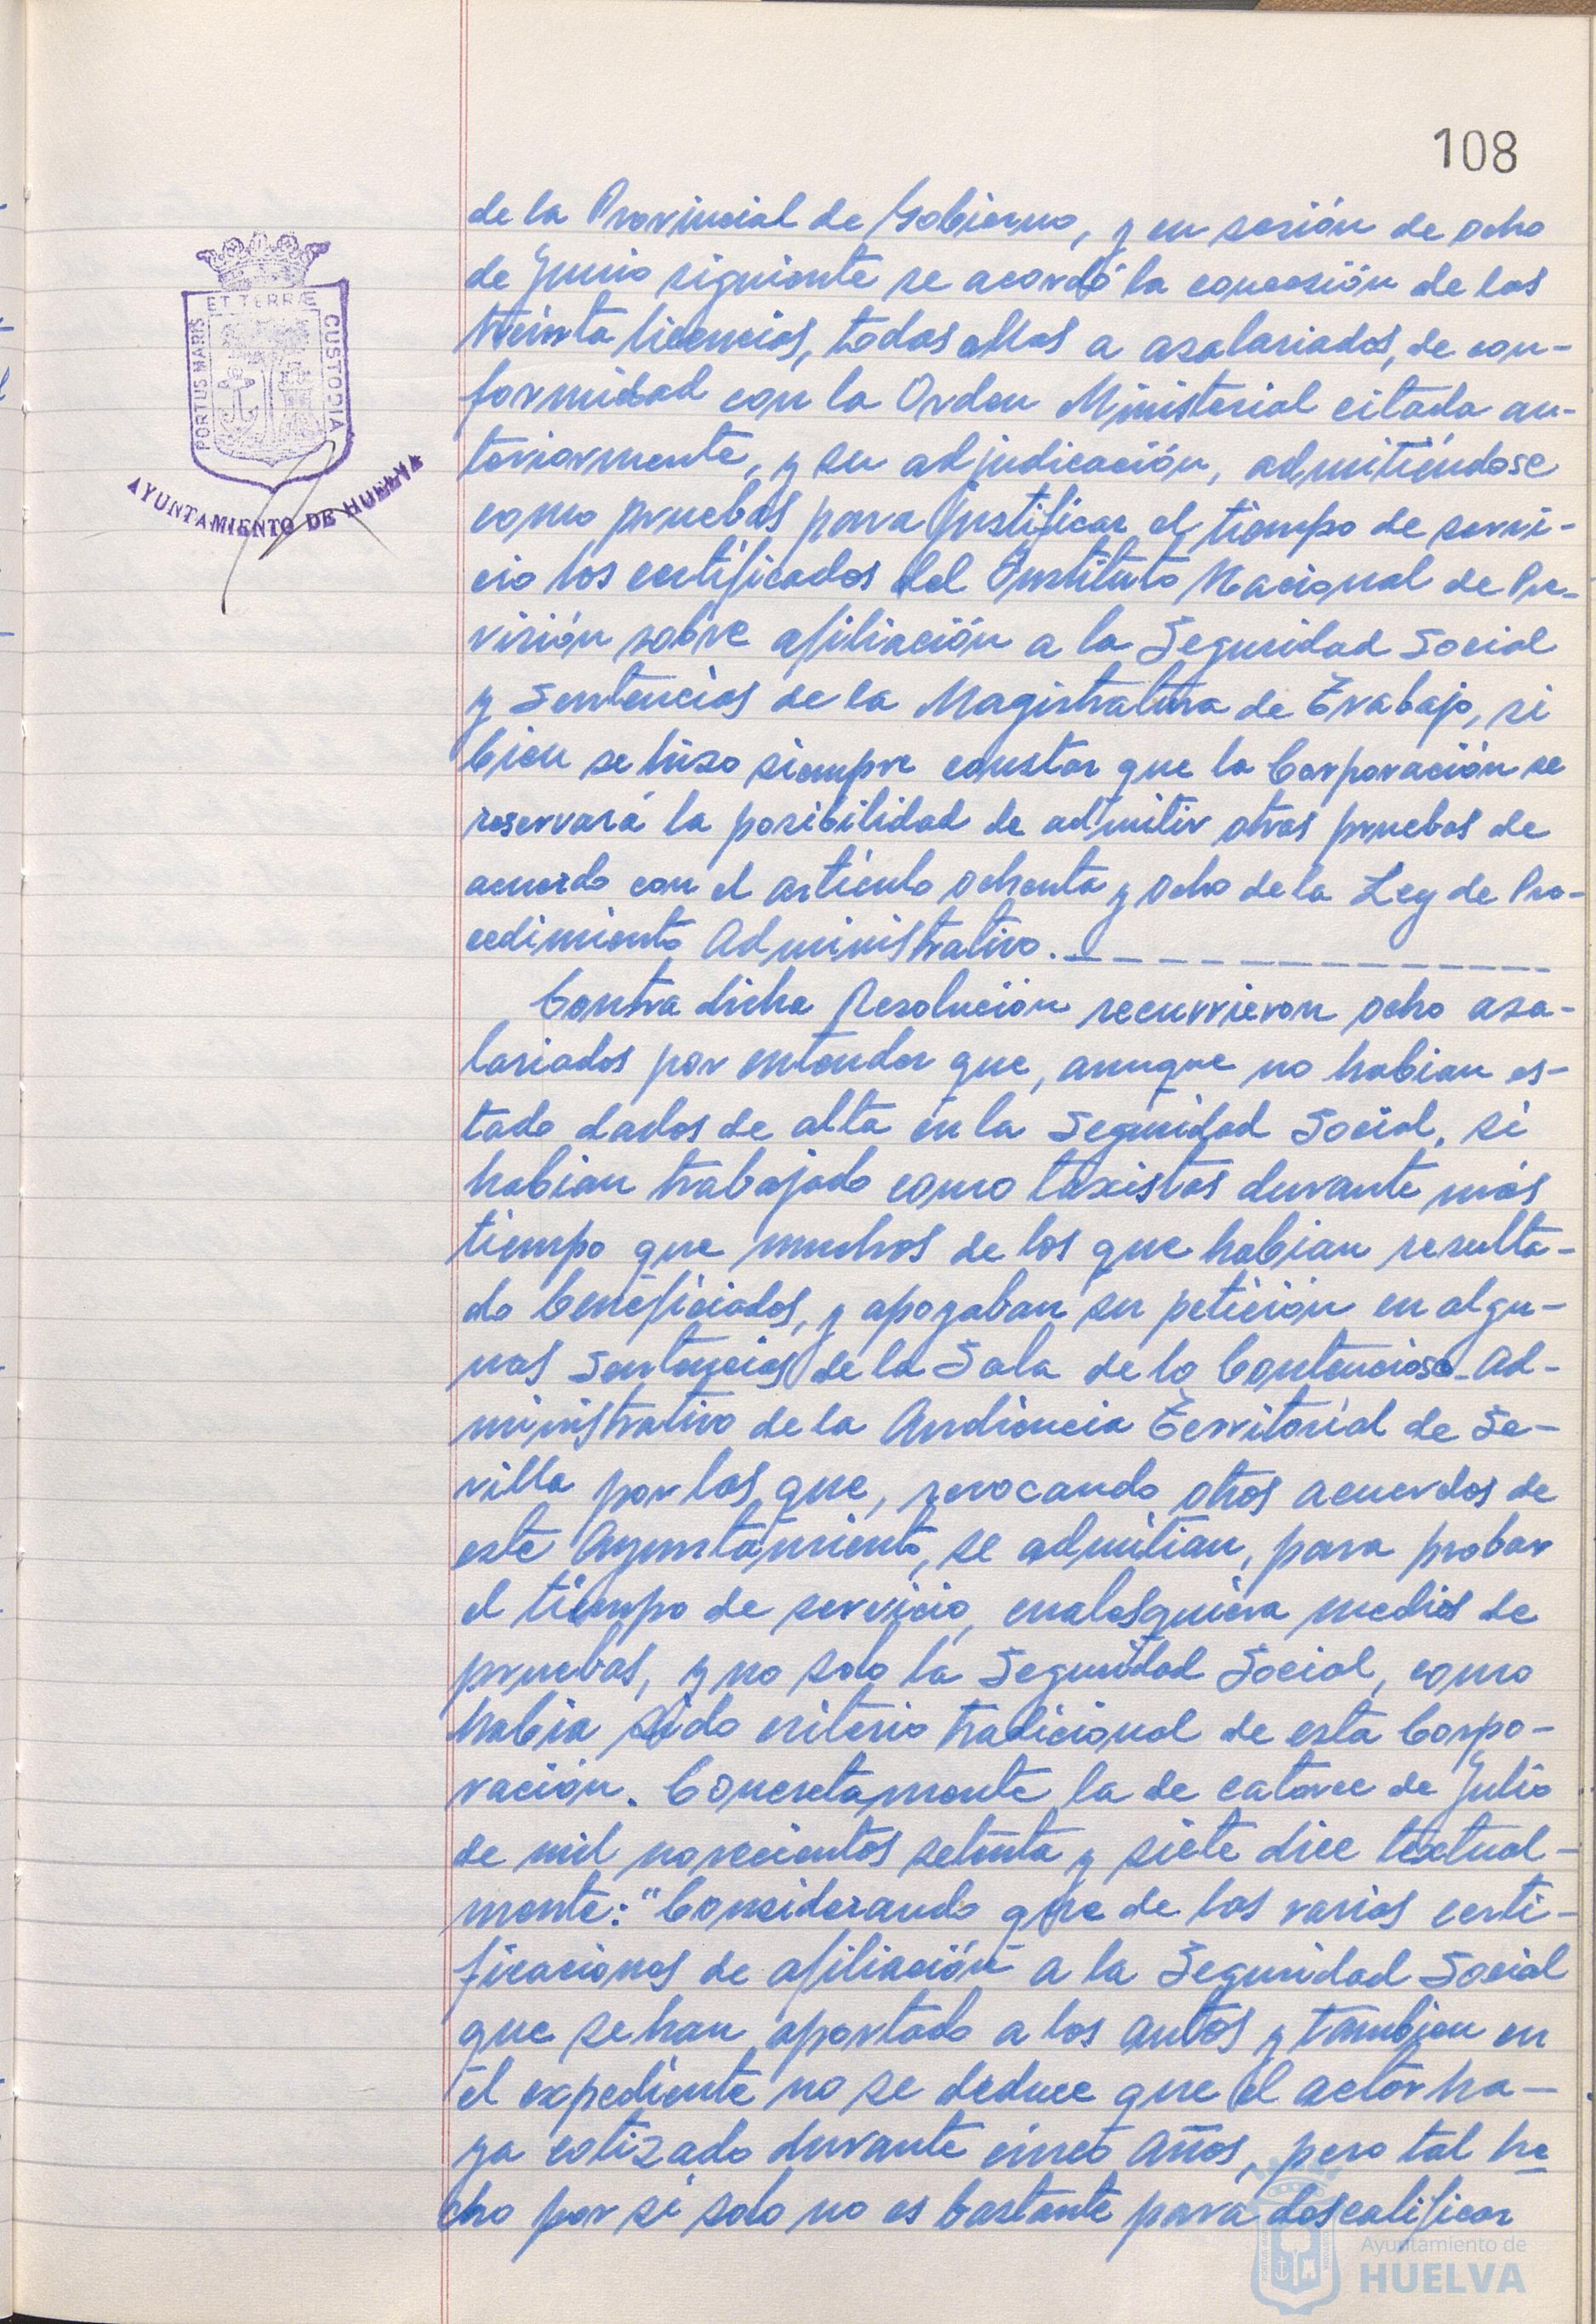 108
ET TERRÆ
PORTUS MARIS
CUSTODIA
AYUNTAMIENTO DE HUELVA
de la Provincial de Gobierno, y en sesión de ocho
de Junio siguiente se acordó la concesión de las
treinta licencias, todas ellas a asalariados, de con-
formidad con la Orden Ministerial citada an-
teriormente, y su adjudicación, admitiéndose
como pruebas para justificar el tiempo de servi-
cio los certificados del Instituto Nacional de Pre-
visión sobre afiliación a la Seguridad Social
y Sentencias de la Magistratura de Trabajo, si
bien se hizo siempre constar que la Corporación se
reservará la posibilidad de admitir otras pruebas de
acuerdo con el artículo ochenta y ocho de la Ley de Pro-
cedimiento Administrativo.
Contra dicha Resolución recurrieron ocho asa-
lariados por entender que, aunque no habian es-
tado dados de alta en la Seguridad Social, si
habian trabajado como taxistas durante más
tiempo que muchos de los que habian resulta-
do beneficiados, y apoyaban su petición en algu-
nas Sentencias de la Sala de lo Contencioso-Ad-
ministrativo de la Audiencia Territorial de Se-
villa por las que, revocando otros acuerdos de
este Ayuntamiento, se admitian, para probar
el tiempo de servicio, cualesquiera medios de
pruebas, y no solo la Seguridad Social, como
habia sido criterio tradicional de esta Corpo-
ración. Concretamente la de catorce de Julio
de mil novecientos setenta y siete dice textual-
mente: "Considerando que de las varias certi-
ficaciones de afiliación a la Seguridad Social
que se han aportado a los autos y tambien en
el expediente no se deduce que el actor ha-
ya cotizado durante cinco años, pero tal he-
cho por si solo no es bastante para descalificar
Ayuntamiento de
HUELVA